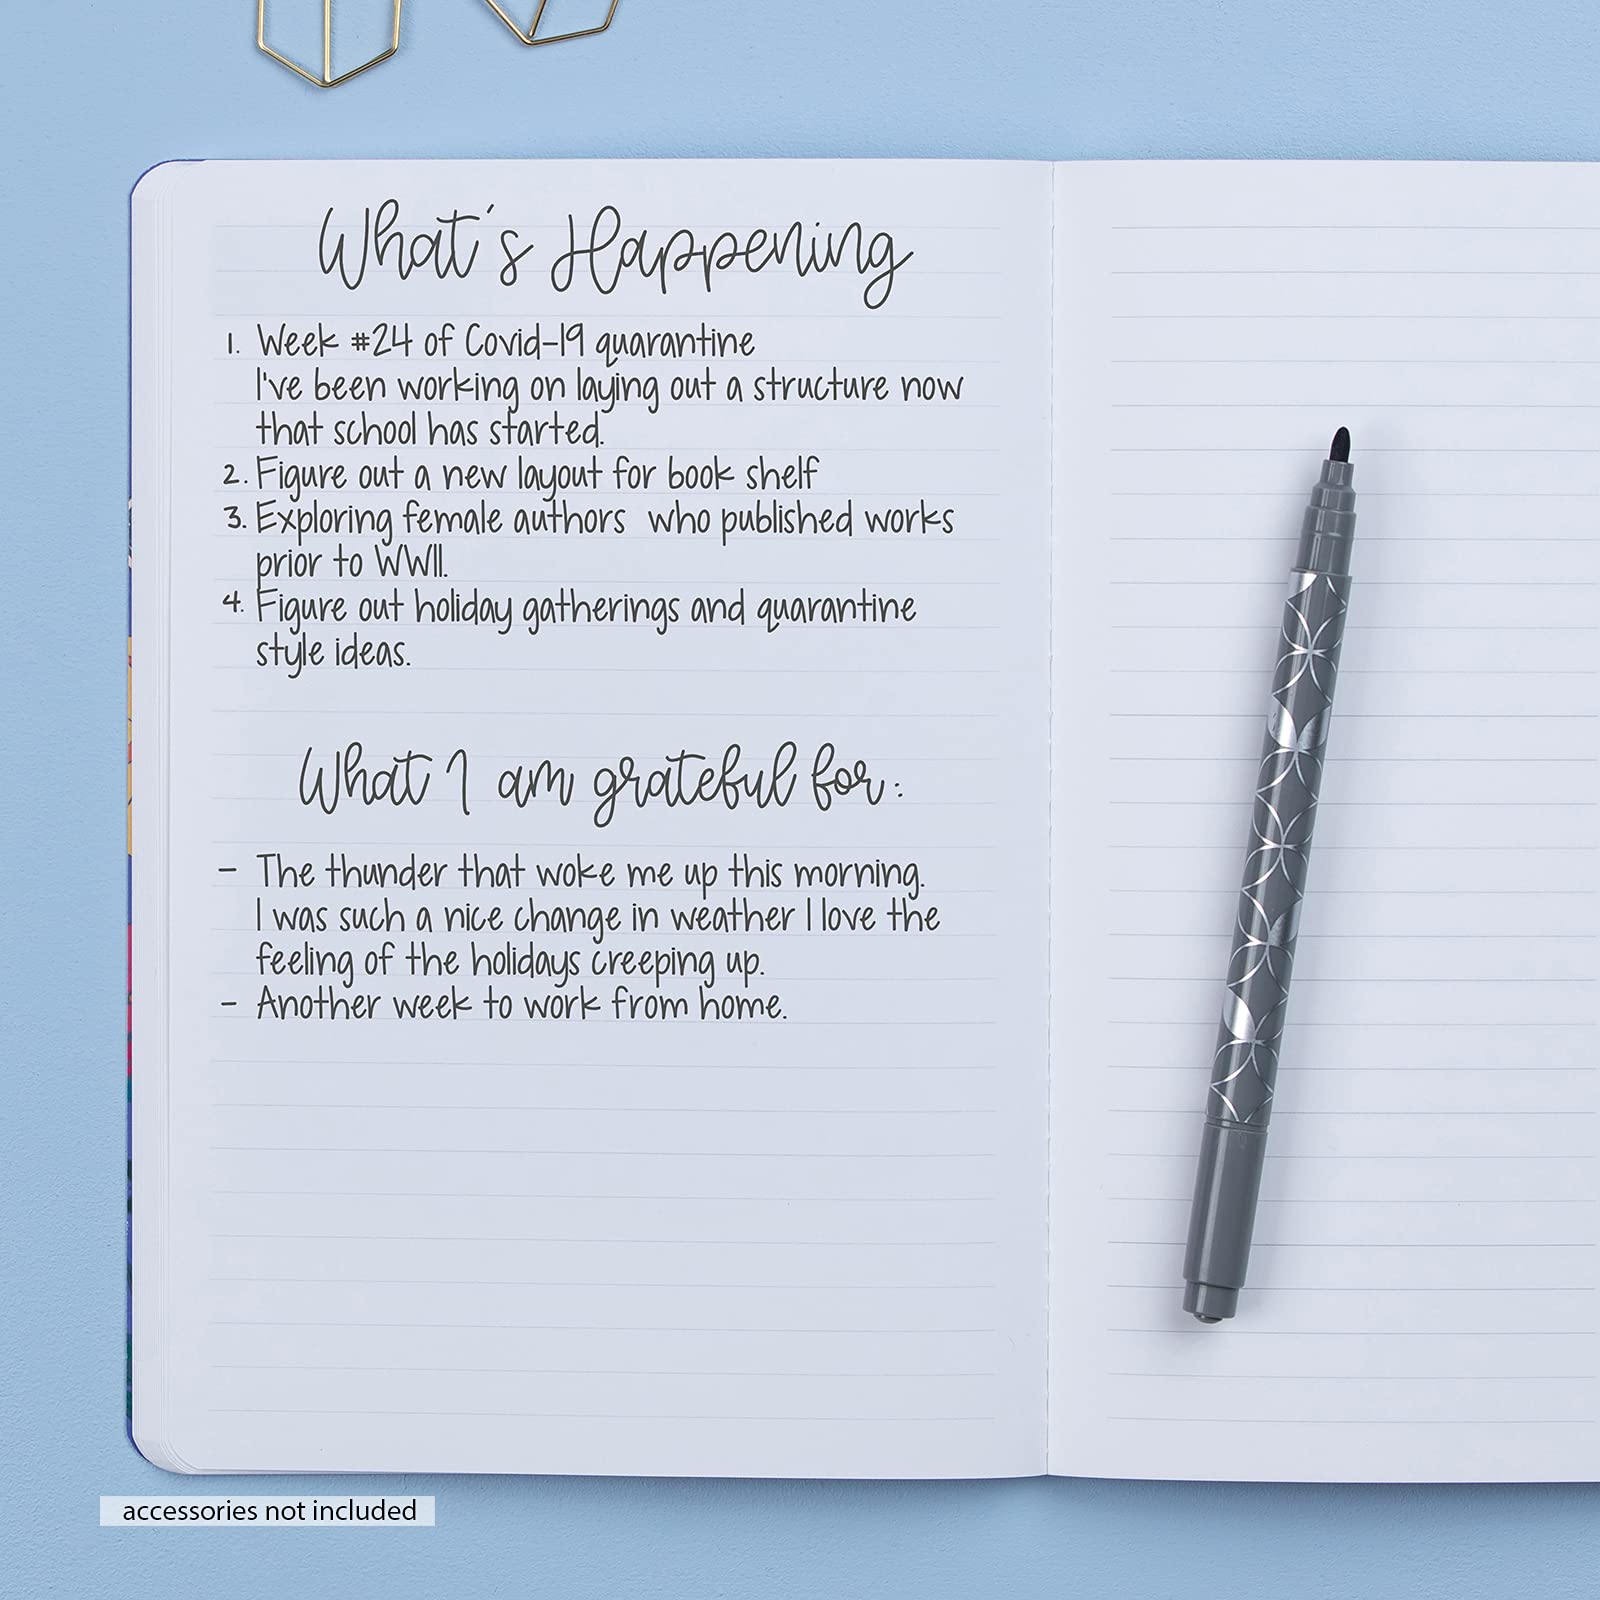 What's Happening
1. Week #24 of Covid-19 quarantine
I've been working on laying out a structure now
that school has started.
2. Figure out a new layout for book shelf
3. Exploring female authors who published works
prior to WWII.
4. Figure out holiday gatherings and quarantine
style ideas.
What I am grateful for:
- The thunder that woke me up this morning.
I was such a nice change in weather I love the
feeling of the holidays creeping up.
- Another week to work from home.
accessories not included